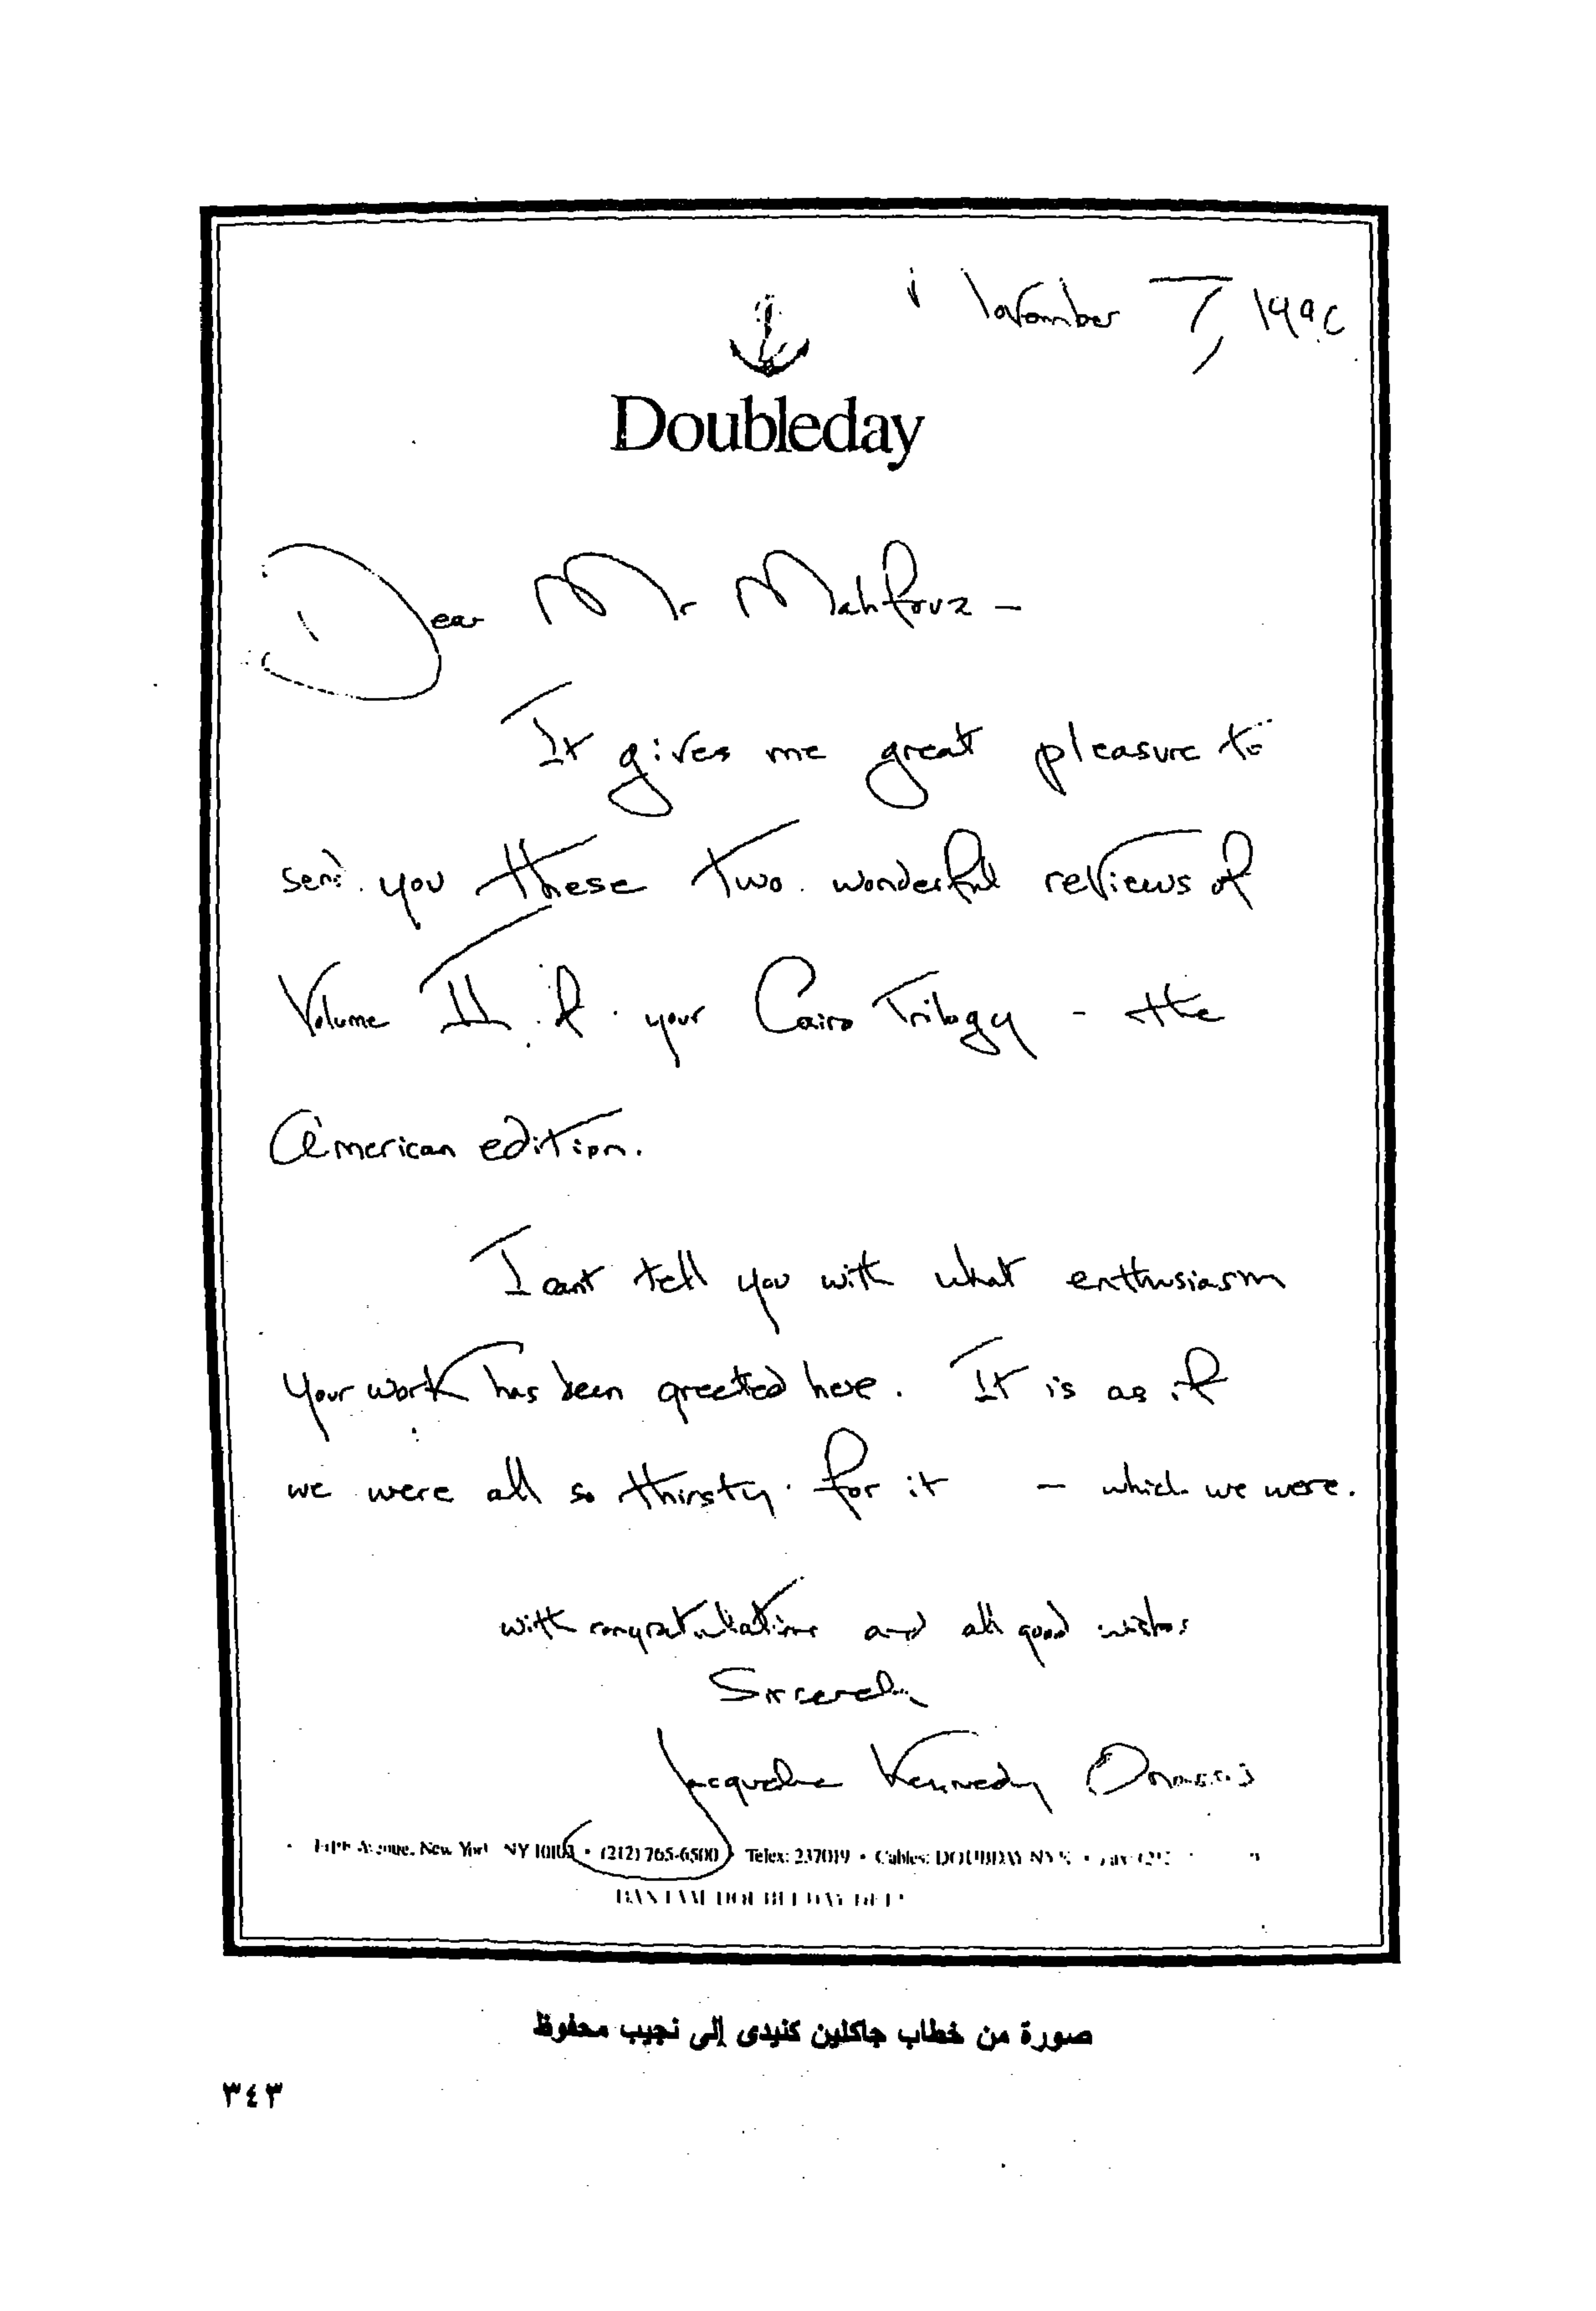 November 7, 1990
Doubleday
Dear Mr Mahfouz –
It gives me great pleasure to
send you these two wonderful reviews of
Volume II of your Cairo Trilogy – the
American edition.
I cant tell you with what enthusiasm
your work has been greeted here. It is as if
we were all so thirsty for it – which we were.
with congratulations and all good wishes
Sincerely
Jacqueline Kennedy Onassis
Fifth Avenue, New York NY 10103 • (212) 765-6500 • Telex: 237019 • Cables: DOUBDAY NYK •
BANTAM DOUBLEDAY DELL
صورة من خطاب جاكلين كنيدى إلى نجيب محفوظ
٣٤٣